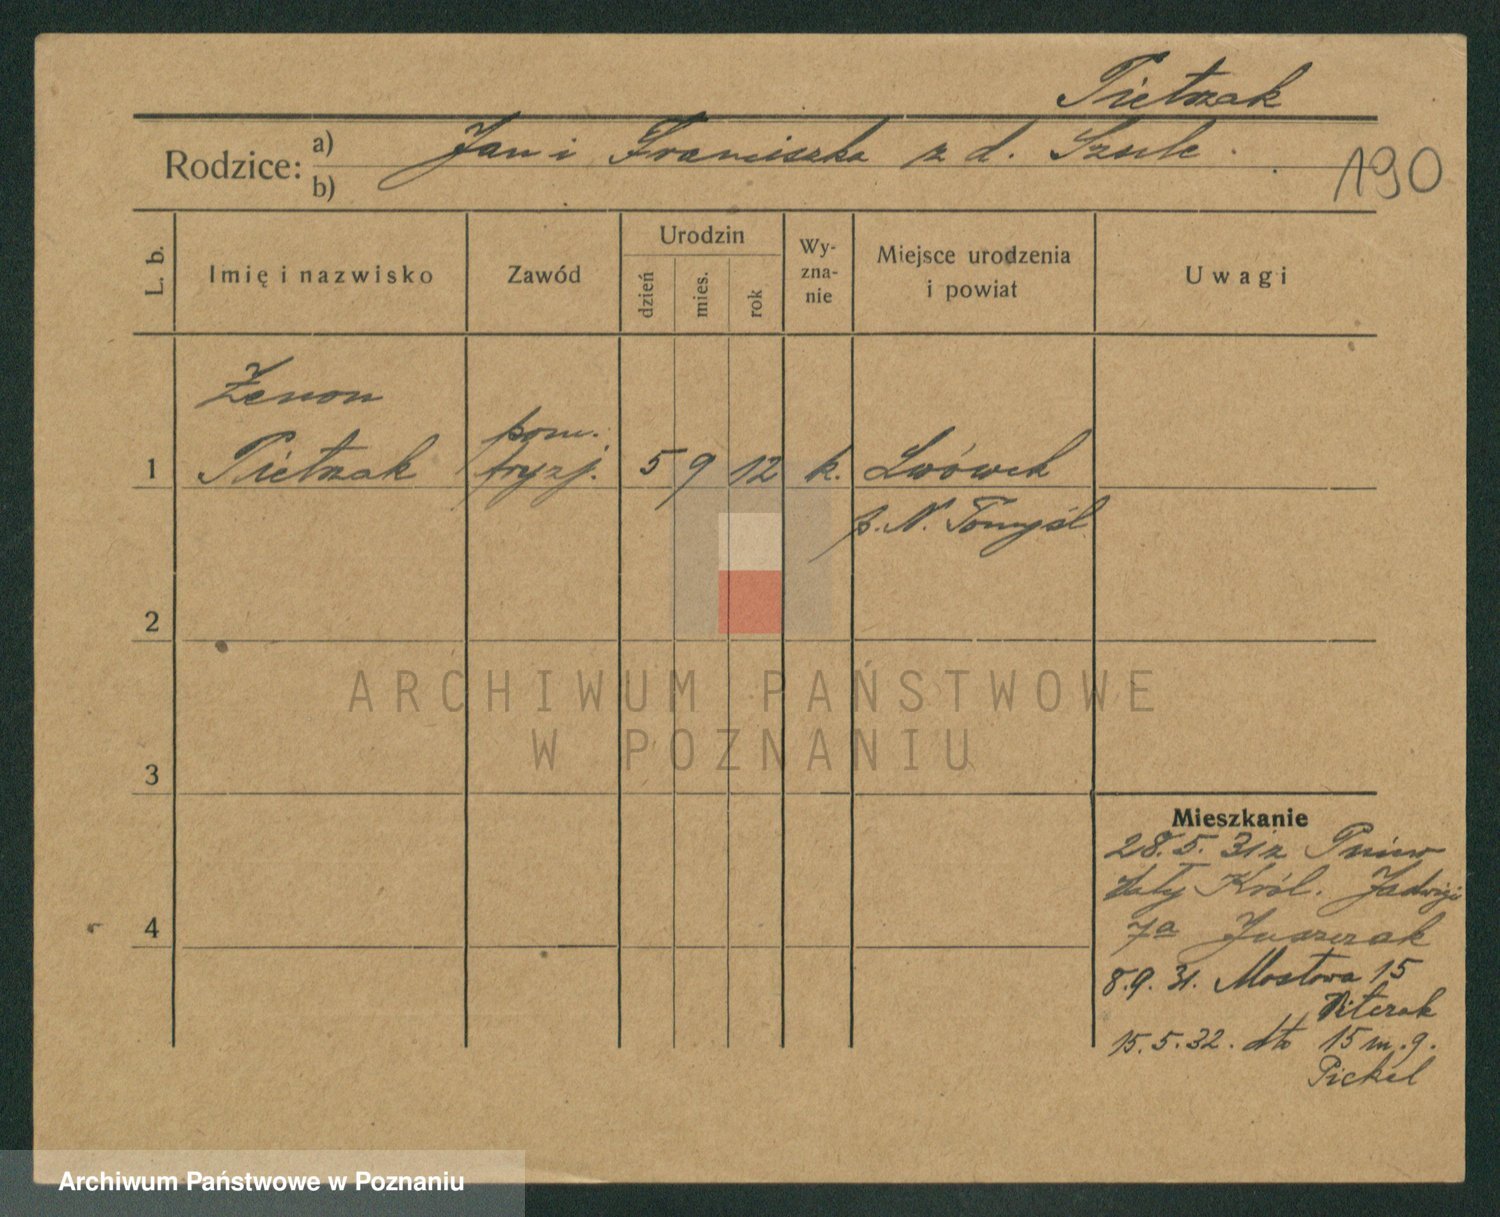 Pietrzak
Rodzice: a) Jan i Franciszka z d. Szulc.
b)
190
L. b.
Imię i nazwisko
Zawód
Urodzin
dzień
mies.
rok
Wy-
zna-
nie
Miejsce urodzenia
i powiat
Uwagi
Zenon
pom.
1 Pietrzak fryzj. 5 9 12 k. Lwówek
p. N. Tomyśl
2
ARCHIWUM PAŃSTWOWE
W POZNANIU
3
Mieszkanie
28.5.31 z Pniew
Wały Król. Jadwigi
4
7a
8.9.31. Mostowa 15
15.5.32. dto 15 m. 9.
Archiwum Państwowe w Poznaniu